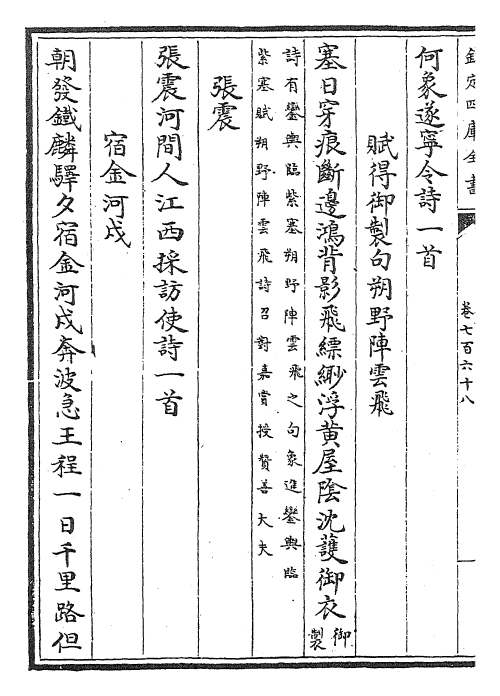 欽定四庫全書
卷七百六十八
何象遂寧令詩一首
賦得御製句朔野陣雲飛
塞日穿痕斷邊鴻背影飛縹緲浮黃屋陰沈護御衣御製
詩有鑾輿臨紫塞朔野陣雲飛之句象進鑾輿臨
紫塞賦朔野陣雲飛詩召對嘉賞授贊善大夫
張震
張震河間人江西採訪使詩一首
宿金河戍
朝發鐵麟驛夕宿金河戍奔波急王程一日千里路但